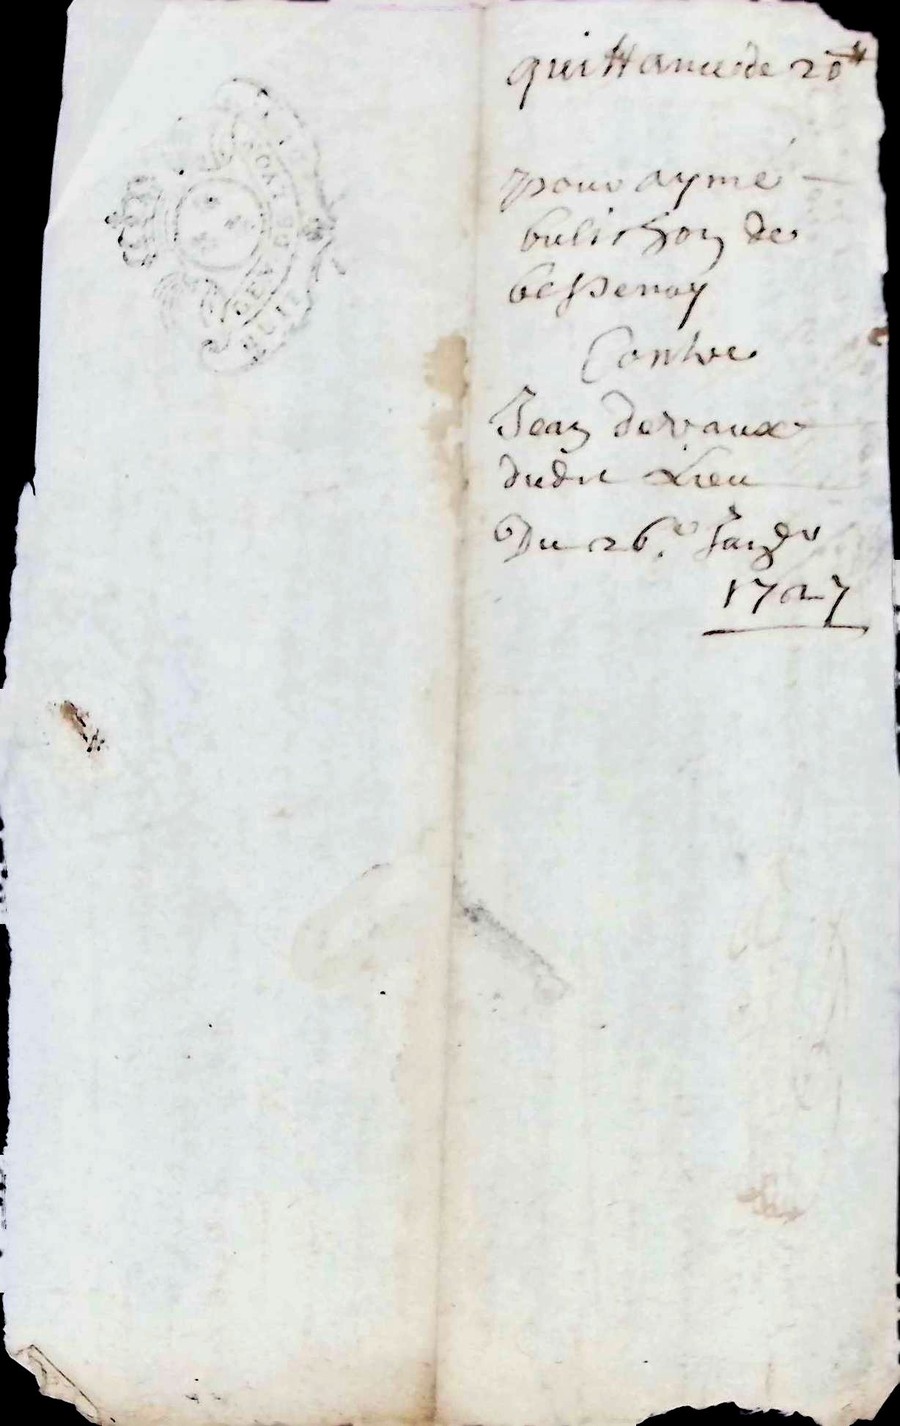 quittance de 20#
pour aymé
bulichon de
bessenay
Contre
Jean devaux
dudit Lieu
Du 26e Janer
1727